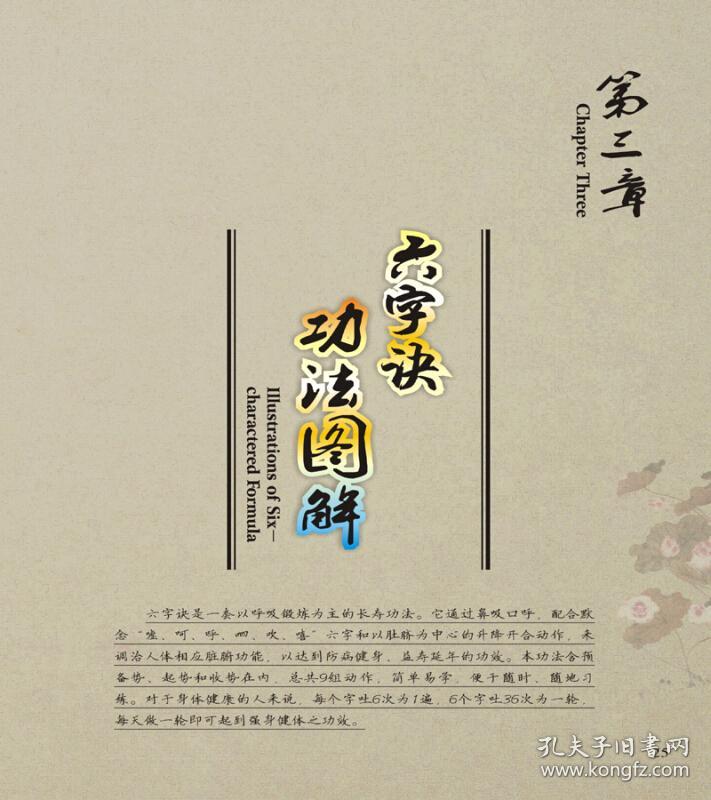 第三章
Chapter Three
六字诀
功法图解
Illustrations of Six-
charactered Formula
六字诀是一套以呼吸锻炼为主的长寿功法。它通过鼻吸口呼，配合默
念“嘘、呵、呼、呬、吹、嘻”六字和以肚脐为中心的升降开合动作，来
调治人体相应脏腑功能，以达到防病健身、益寿延年的功效。本功法含预
备势、起势和收势在内，总共9组动作，简单易学，便于随时、随地习
练。对于身体健康的人来说，每个字吐6次为1遍，6个字吐36次为一轮，
每天做一轮即可起到强身健体之功效。
25
孔夫子旧書网
www.kongfz.com